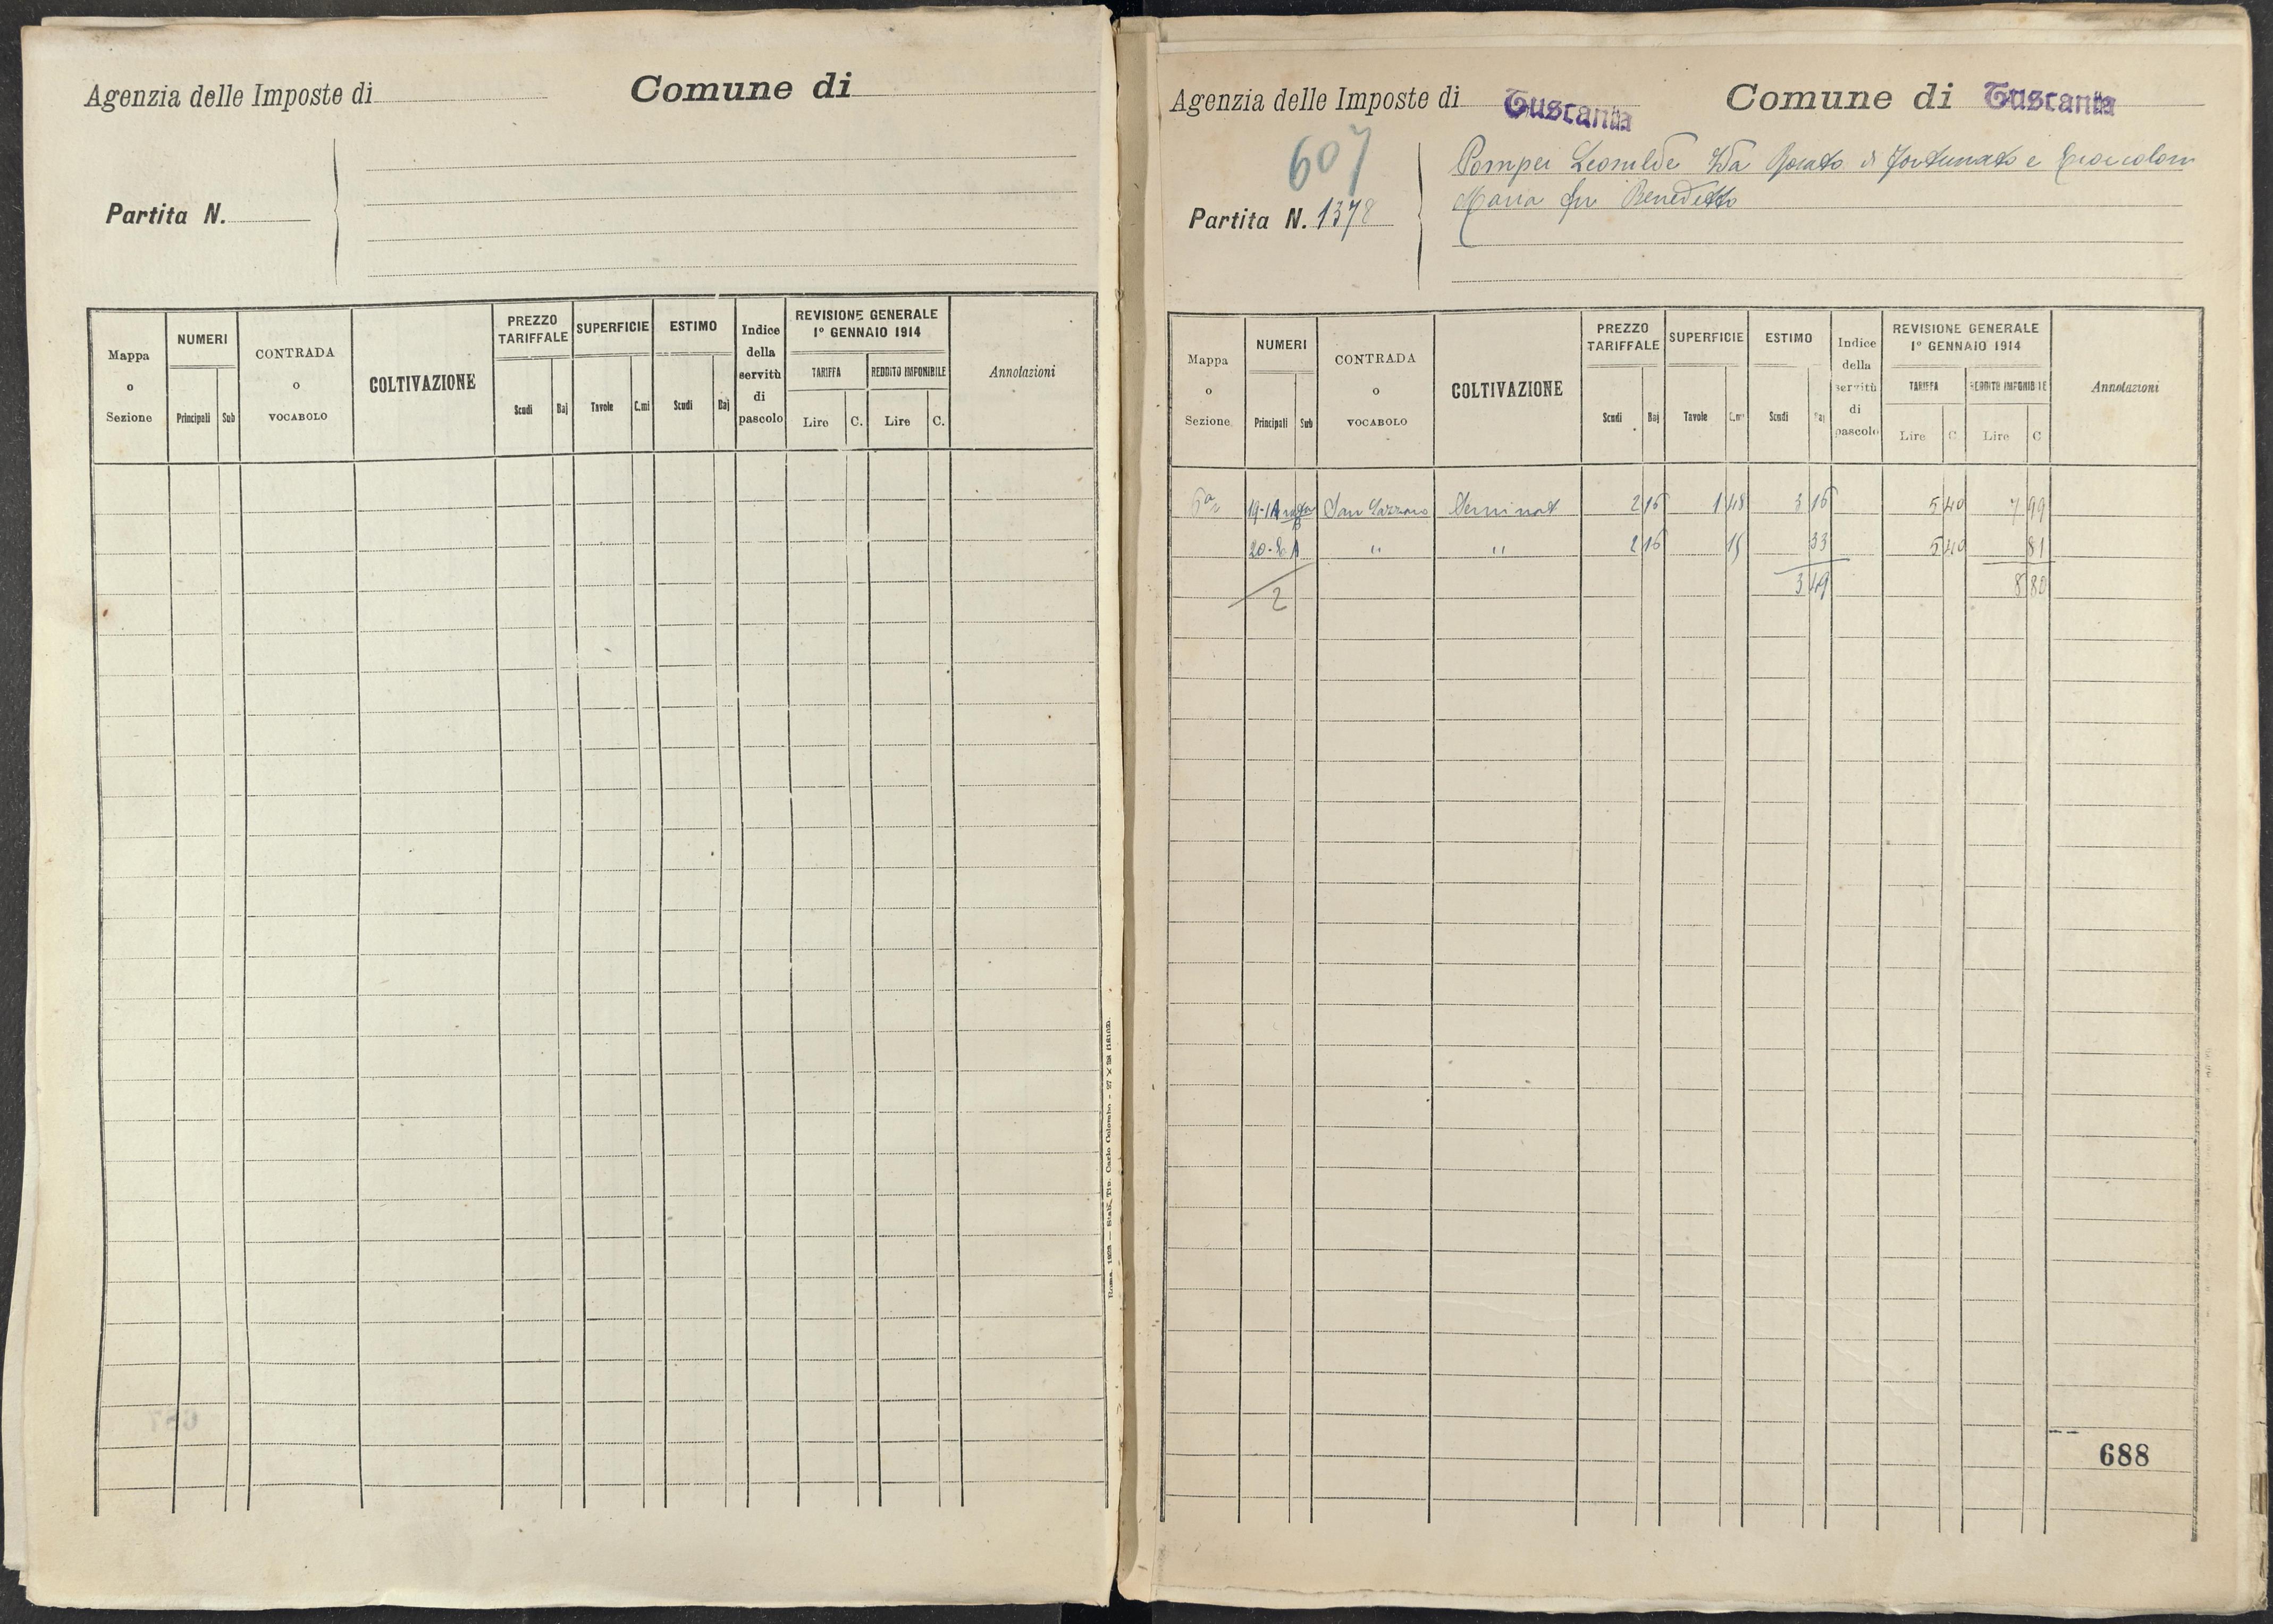 Agenzia delle Imposte di
Comune di
Partita N.
Mappa o Sezione
NUMERI
Principali Sub
CONTRADA o VOCABOLO
COLTIVAZIONE
PREZZO TARIFFALE
Scudi Baj
SUPERFICIE
Tavole C.mi
ESTIMO
Scudi Baj
Indice della servitù di pascolo
REVISIONE GENERALE
1º GENNAIO 1914
TARIFFA REDDITO IMPONIBILE
Lire C. Lire C.
Annotazioni
Roma, 1923 — Stab. Tip. Carlo Colombo
Agenzia delle Imposte di Tuscania
Comune di Tuscania
607
Pompei Leonilde di Fortunato e
Maria fu Benedetto
Partita N. 1378
Mappa o Sezione
NUMERI
Principali Sub
CONTRADA o VOCABOLO
COLTIVAZIONE
PREZZO TARIFFALE
Scudi Baj
SUPERFICIE
Tavole C.mi
ESTIMO
Scudi Baj
Indice della servitù di pascolo
REVISIONE GENERALE
1º GENNAIO 1914
TARIFFA REDDITO IMPONIBILE
Lire C Lire C
Annotazioni
6ª San Lazzaro Seminat 2 16 1 48 3 16 5 40 7 99
" " 2 16 15 33 5 40 81
2 3 49 8 80
688